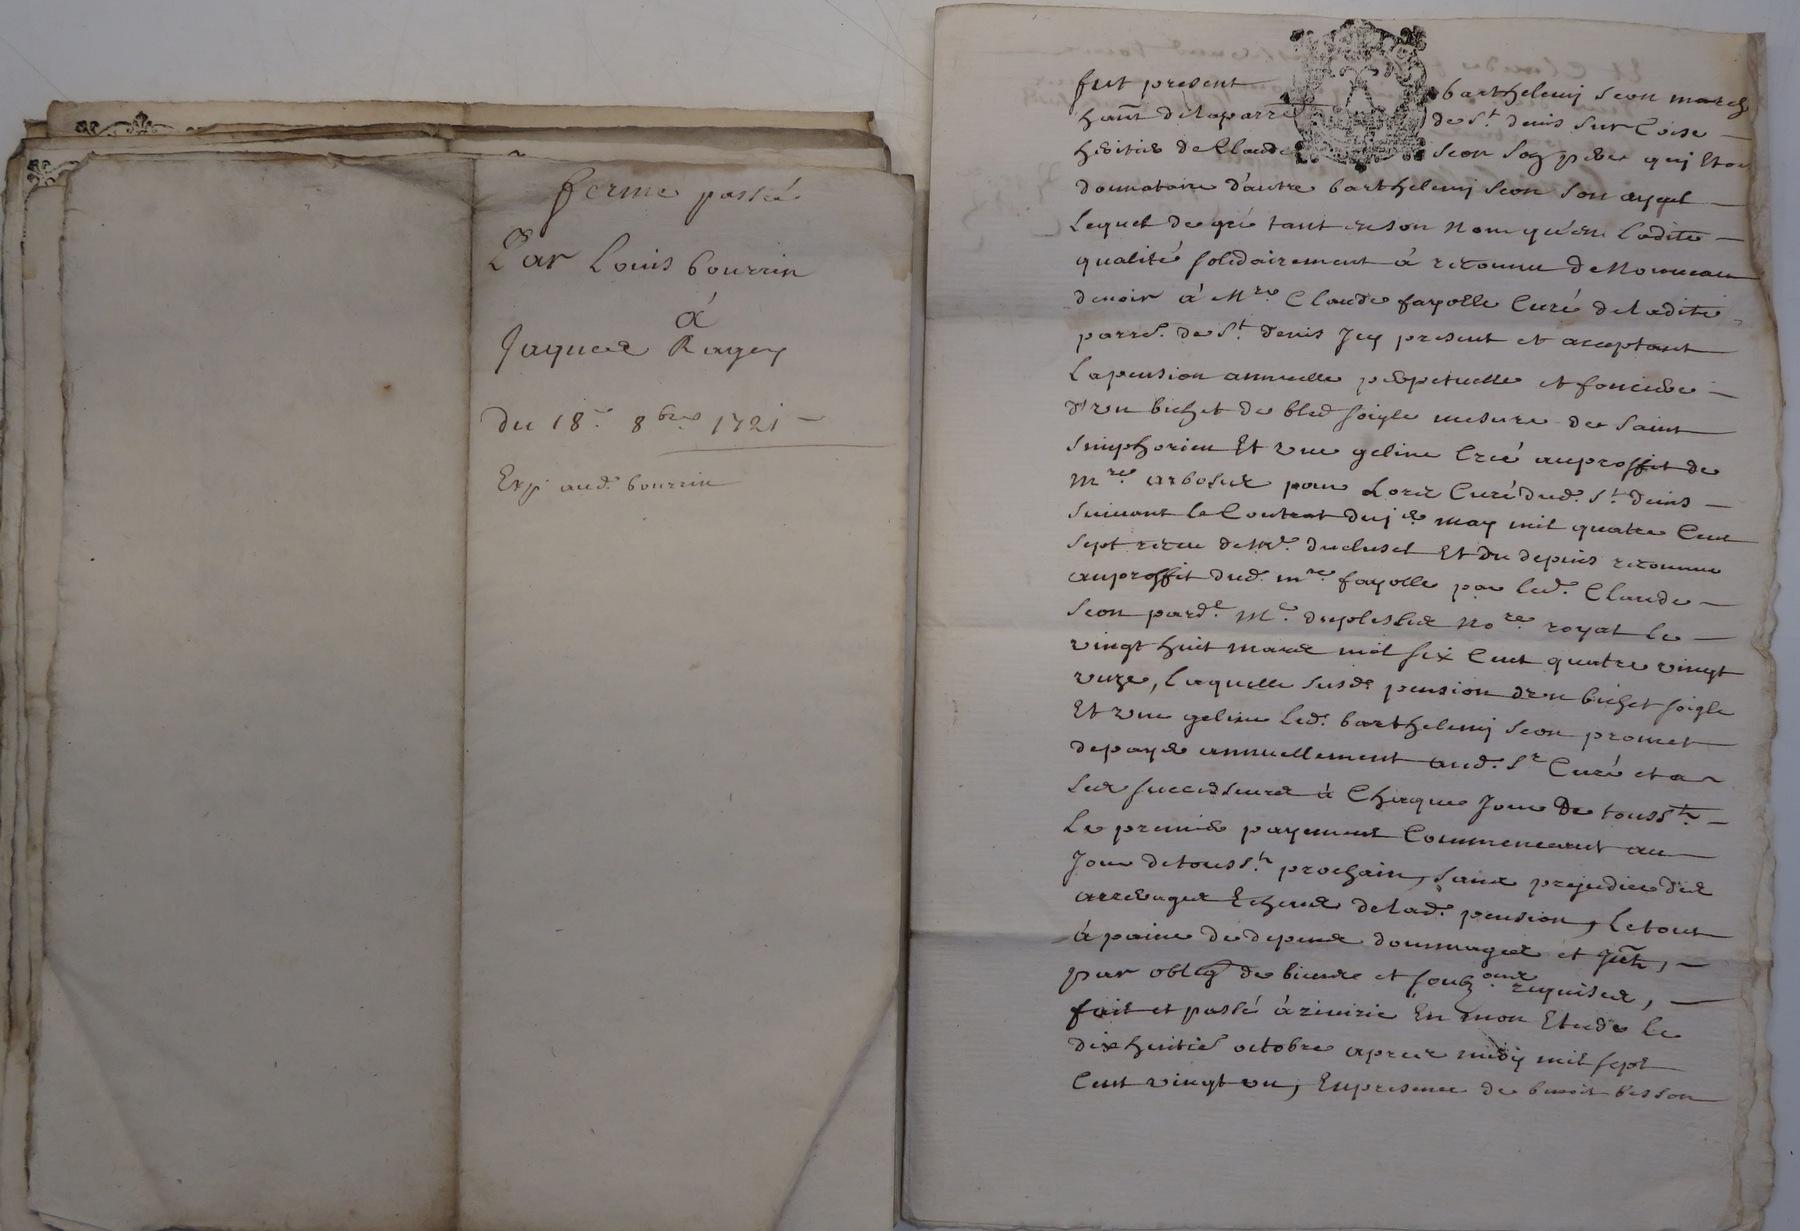 ferme passée
Par Louis bourrin
à
Jaques Ragey
du 18e. 8bre. 1721
Exp. aud. bourrin
fut present barthelemj seon march
hant de laparre de St. denis sur Coise
heritier de Claude seon son pere quj Etoit
donnataire d'autre barthelemj seon son ayeul
Lequel de gré tant en son nom qu'en ladite
qualité solidairement a reconnu de Nouveau
devoir à Mre Claude fayolle Curé de ladite
parre. de St. denis Jcy present et acceptant
La pension annuelle perpetuelle et fonciere
d'vn bichet de bled soigle mesure de Saint
simphorien Et vne geline Creé au proffit de
Mre. pour Lors Curé dud. St. denis
suivant le Contrat du may mil quatre Cent
sept receu de Me. ducluset Et du depuis reconnue
au proffit dud. mre. fayolle par led. Claude
seon pard. Me. duplessis nore. royal le
vingt huit mars mil six Cent quatre vingt
vnze, Laquelle susde. pension d'vn bichet soigle
Et vne geline Led. barthelemj seon promet
de payer annuellement aud. Sr. Curé et a
ses successeurs à Chaque Jour de toussts.
Le premier payement Commencant au
Jour de toussts. prochain, sans prejudice des
arrerages Echeus de lad. pension, Le tout
à paine de depens dommages et
par oblig. de biens et soubz. requises,
fait et passé à riverie En mon Etude Le
dix huitie. octobre apres midy mil sept
Cent vingt vn, En presence de benoit besson